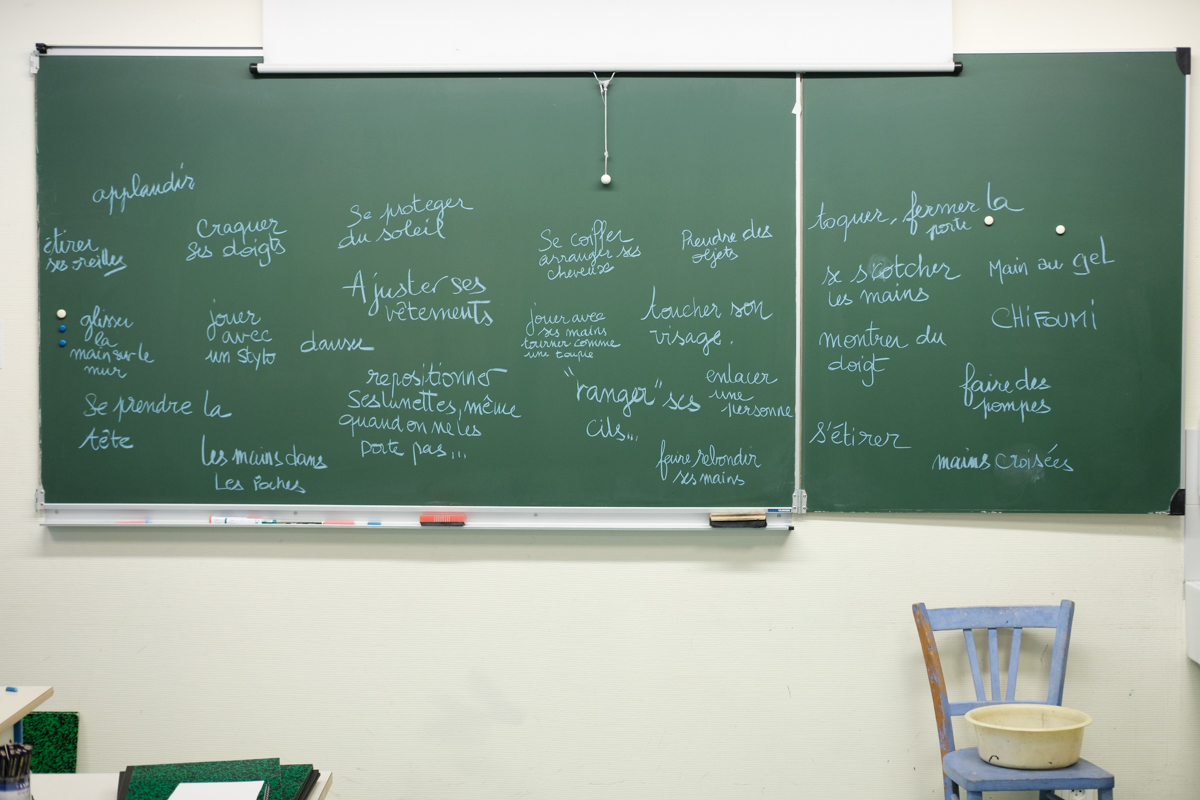 applaudir
étirer
ses oreilles
Craquer
ses doigts
Se proteger
du soleil
Ajuster ses
vêtements
glisser
la
main sur le
mur
jouer
avec
un stylo
danser
Se prendre la
tête
les mains dans
Les Poches
repositionner
Ses lunettes, même
quand on ne les
porte pas...
Se coiffer
arranger ses
cheveux
Prendre des
objets
jouer avec
ses mains
tourner comme
une toupie
toucher son
visage.
"ranger" ses
cils...
enlacer
une
personne
faire rebondir
ses mains
toquer, fermer la
porte
se scotcher
les mains
Main au gel
CHiFOUMi
montrer du
doigt
faire des
pompes
S'étirer
mains croisées